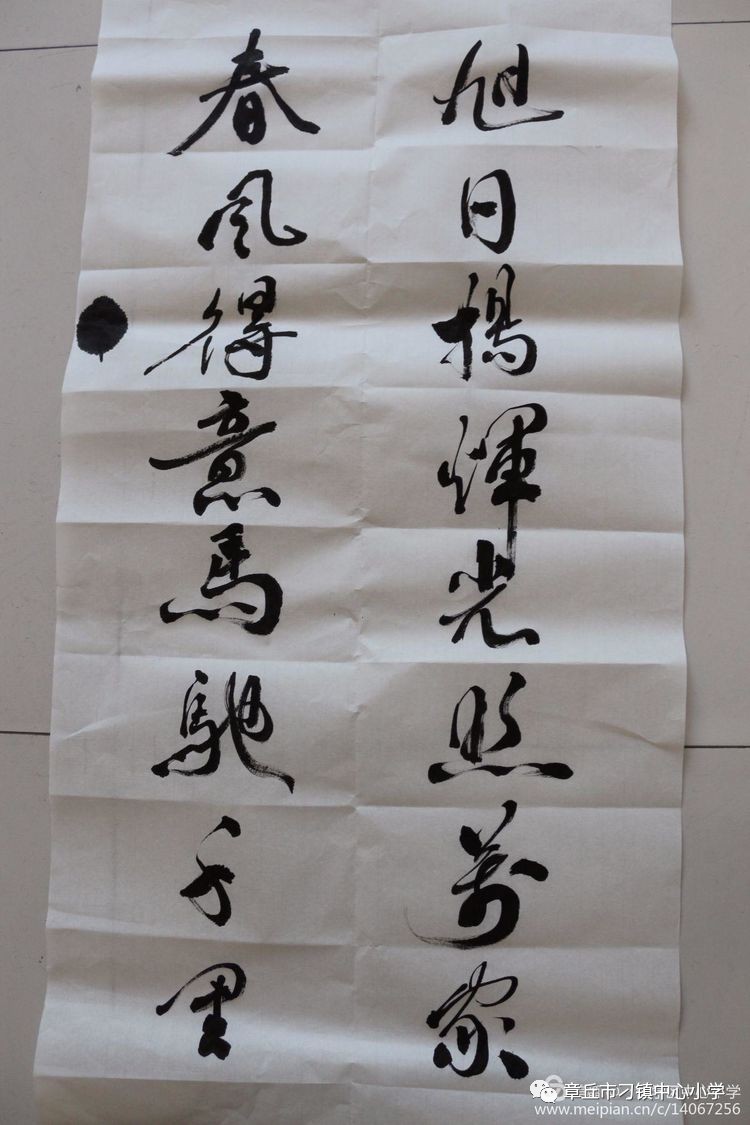 旭日揚輝光照萬家
春風得意馬馳千里
章丘市刁镇中心小学
www.meipian.cn/c/14067256